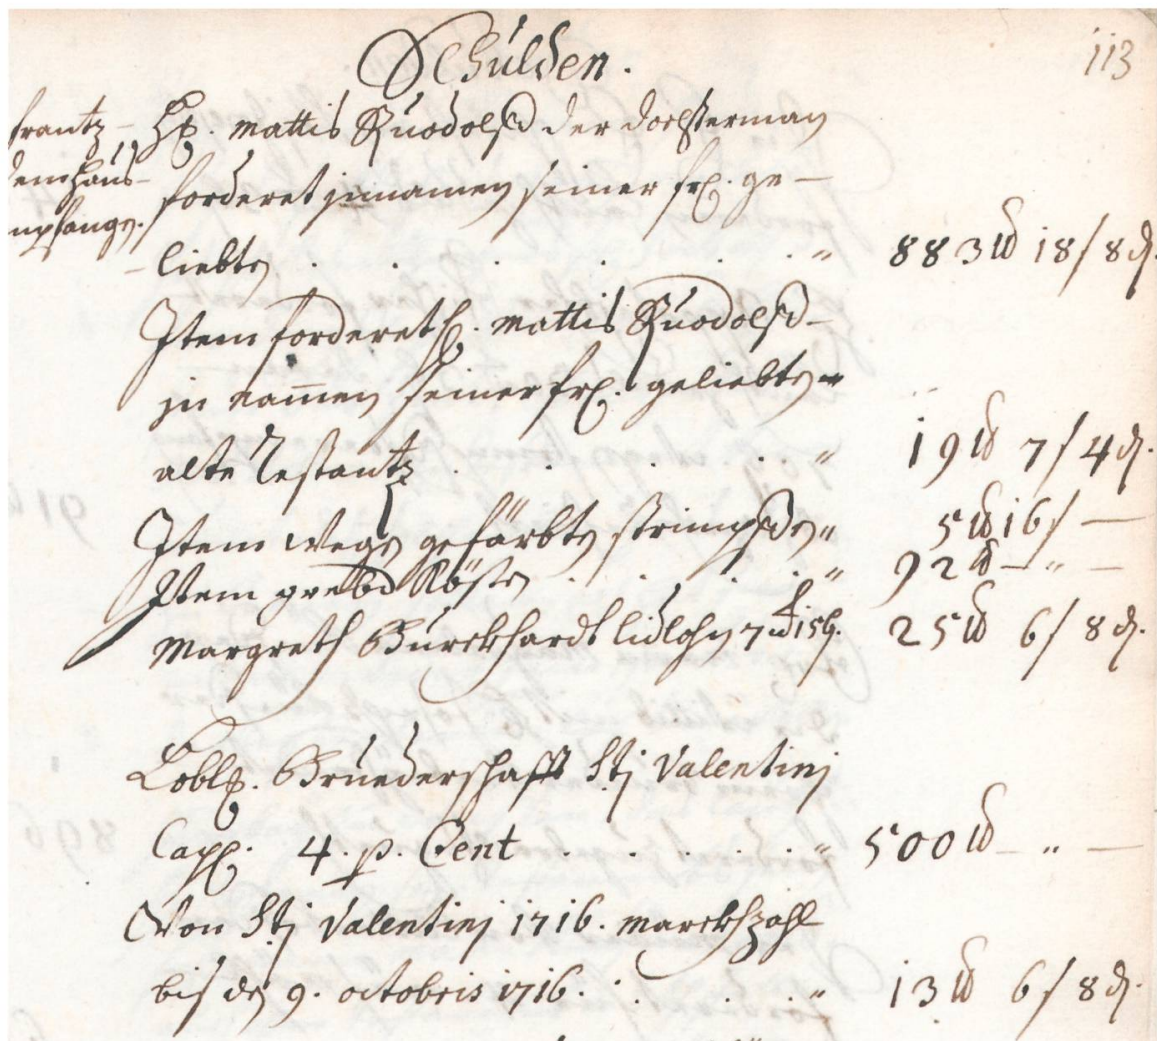 Schulden.
113
frantz
dem haus-
Hr. mattis Ruodolff der dorfferman
forderet jnnamen seiner frl. ge-
liebten . . . . . " 883 lb 18 ß 8 d.
Item forderet H. mattis Ruodolff
jn nam̄en seiner frl. geliebten
alte Restantz . . . . " 19 lb 7 ß 4 d.
Item wegen gefärbten strimpffen " 5 lb 16 ß —
Item . . . . " 92 lb — " —
Margreth Burckhardt lidlohn 7 lb 15 ß. 25 lb 6 ß 8 d.
Lobl. Bruederschafft Sti Valentinj
Capl. 4. p. Cent . . . . . " 500 lb — " —
Von Sti Valentinj 1716. marckhzahl
bis den 9. octobris 1716. . . . . " 13 lb 6 ß 8 d.